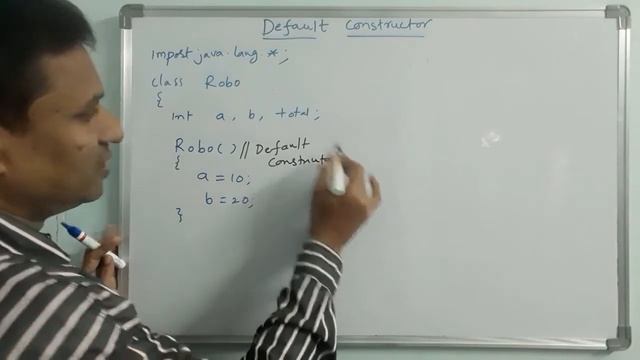 Default Constructor
Import java.lang *;
class Robo
{
int a, b, total;
Robo() // Default
{
Construct
a = 10;
b = 20;
}